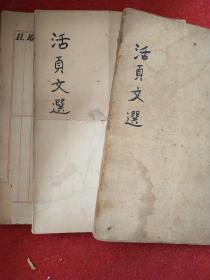 11.16
活頁文選
活頁文選